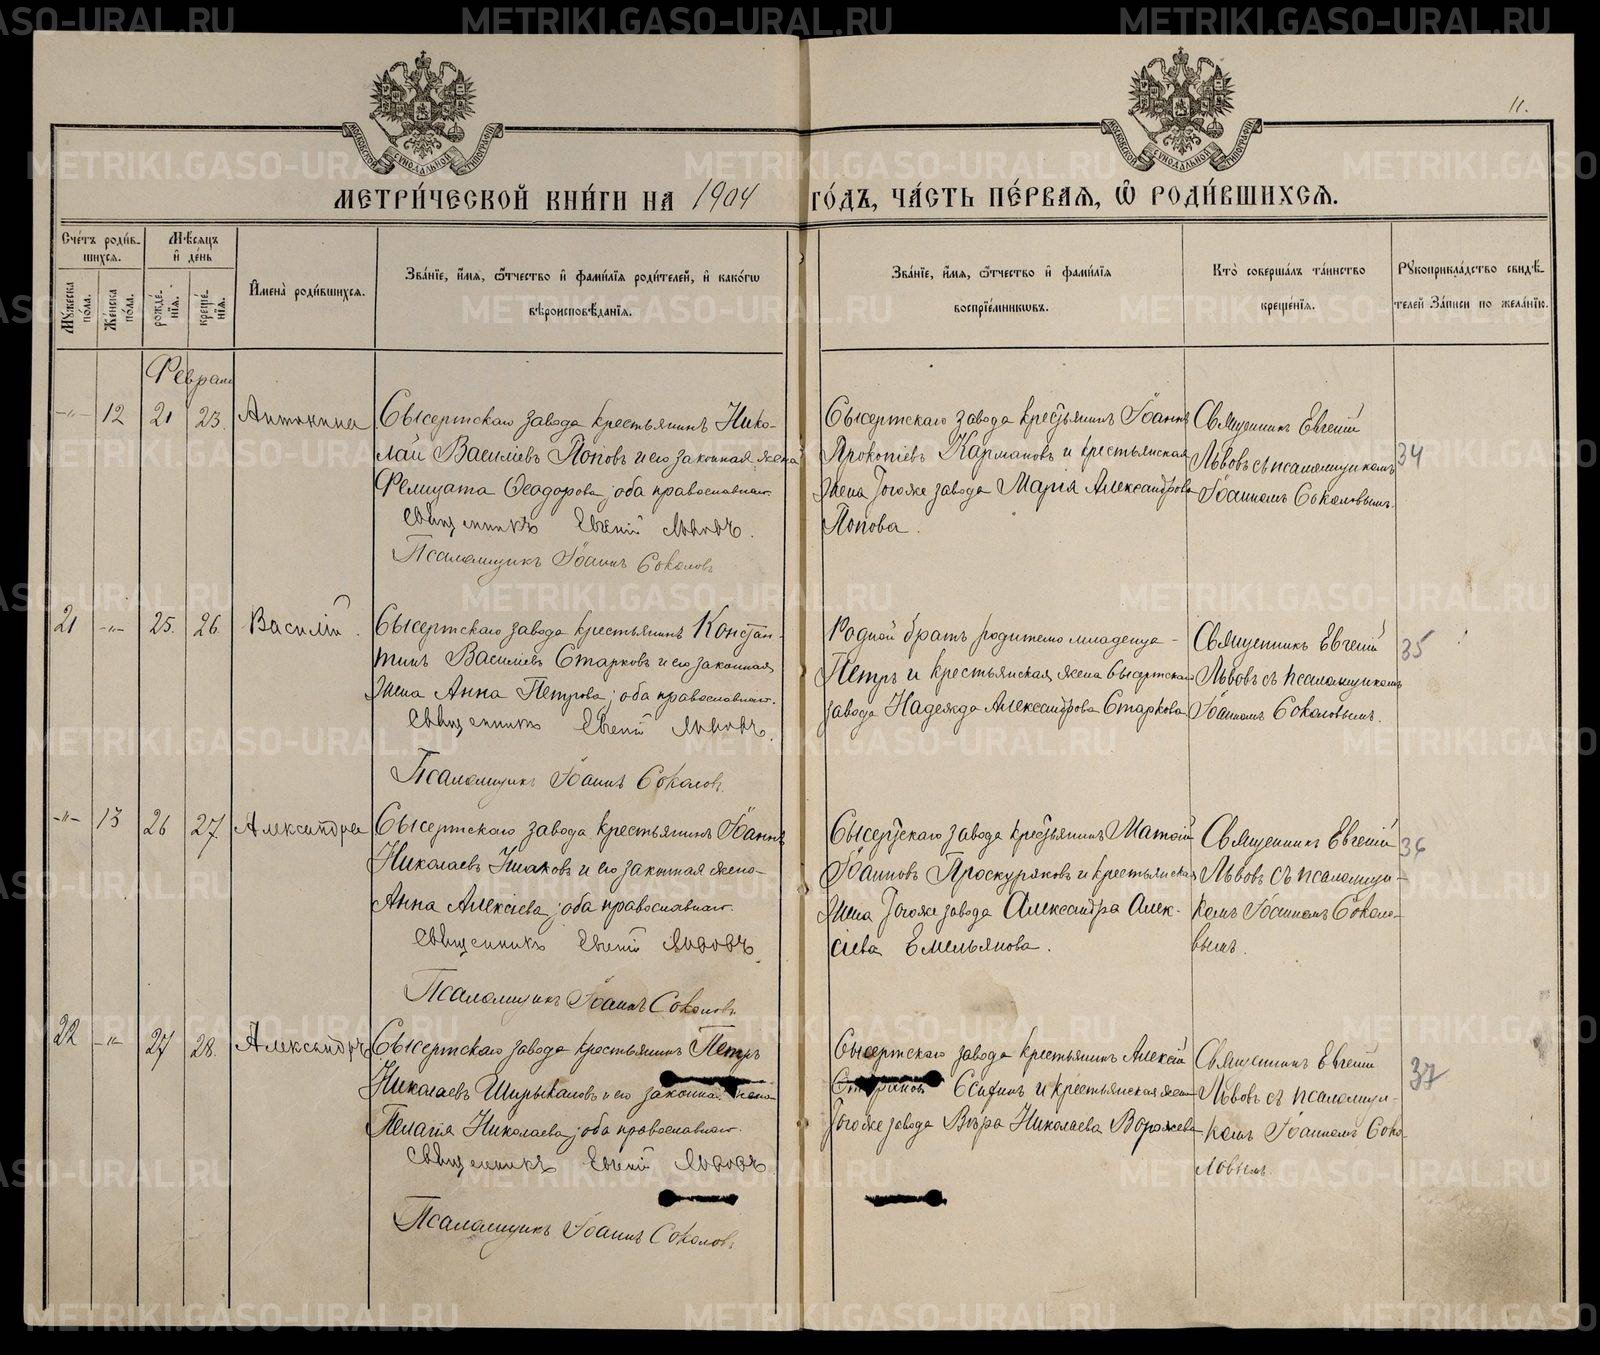 11.
МОСКОВСКОЙ СѴНОДАЛЬНОЙ ТИПОГРАФІИ
МОСКОВСКОЙ СѴНОДАЛЬНОЙ ТИПОГРАФІИ
МЕТРИ́ЧЕСКОЙ КНИ́ГИ НА 1904 ГО́ДЪ, ЧА́СТЬ ПЕ́РВАѦ, Ѽ РОДИ́ВШИХСѦ.
Сче́тъ роди́вшихсѧ.
Мѹжеска по́ла.
Же́нска по́ла.
Мѣ́сѧцъ и҆ де́нь
рожде́нїѧ.
креще́нїѧ.
И҆мена̀ роди́вшихсѧ.
Зва́нїе, и҆́мѧ, ѻ҆́тчество и҆ фами́лїѧ роди́телей, и҆ како́гѡ
вѣроисповѣ́данїѧ.
Зва́нїе, и҆́мѧ, ѻ҆́тчество и҆ фами́лїѧ
воспрїе́мникѡвъ.
Кто̀ соверша́лъ та́инство
креще́нїѧ.
Рꙋкоприкла́дство свидѣ́-
телей за́писи по жела́нїю.
Февраль
-"- 12 21 23. Антонина
Сысертскаго завода крестьянинъ Нико-
лай Василіевъ Поповъ и его законная жена
Фелицата Ѳеодорова; оба православнаго.
Священникъ Евгеній Львовъ.
Псаломщикъ Іоаннъ Соколовъ
Сысертскаго завода крестьянинъ Іоаннъ
Прокопіевъ Кармановъ и крестьянская
жена того же завода Марія Александрова
Попова.
Священникъ Евгеній
Львовъ съ псаломщикомъ
Іоанномъ Соколовымъ.
34
21 -"- 25. 26. Василій.
Сысертскаго завода крестьянинъ Констан-
тинъ Василіевъ Старковъ и его законная
жена Анна Петрова; оба православнаго.
Священникъ Евгеній Львовъ.
Псаломщикъ Іоаннъ Соколовъ.
Родной братъ родителю младенца -
Петръ и крестьянская жена Сысертскаго
завода Надежда Александрова Старкова
Священникъ Евгеній
Львовъ съ псаломщикомъ
Іоанномъ Соколовымъ.
35
-"- 13 26 27. Александра
Сысертскаго завода крестьянинъ Іоаннъ
Николаевъ и его законная жена
Анна Алексіева; оба православнаго.
Священникъ Евгеній Львовъ.
Псаломщикъ Іоаннъ Соколовъ
Сысертскаго завода крестьянинъ Матѳій
Іоанновъ Проскуряковъ и крестьянская
жена того же завода Александра Алек-
сіева Емельянова.
Священникъ Евгеній
Львовъ съ псаломщи-
комъ Іоанномъ Соколо-
вымъ.
36
22 -"- 27 28. Александръ
Сысертскаго завода крестьянинъ Петръ
Николаевъ Ширыкаловъ и его законная жена
Пелагія Николаева; оба православнаго.
Священникъ Евгеній Львовъ.
Псаломщикъ Іоаннъ Соколовъ.
Сысертскаго завода крестьянинъ Алексій
и крестьянская жена
того же завода Вѣра Николаева
Священникъ Евгеній
Львовъ съ псаломщи-
комъ Іоанномъ Соко-
ловымъ.
37
METRIKI.GASO-URAL.RU